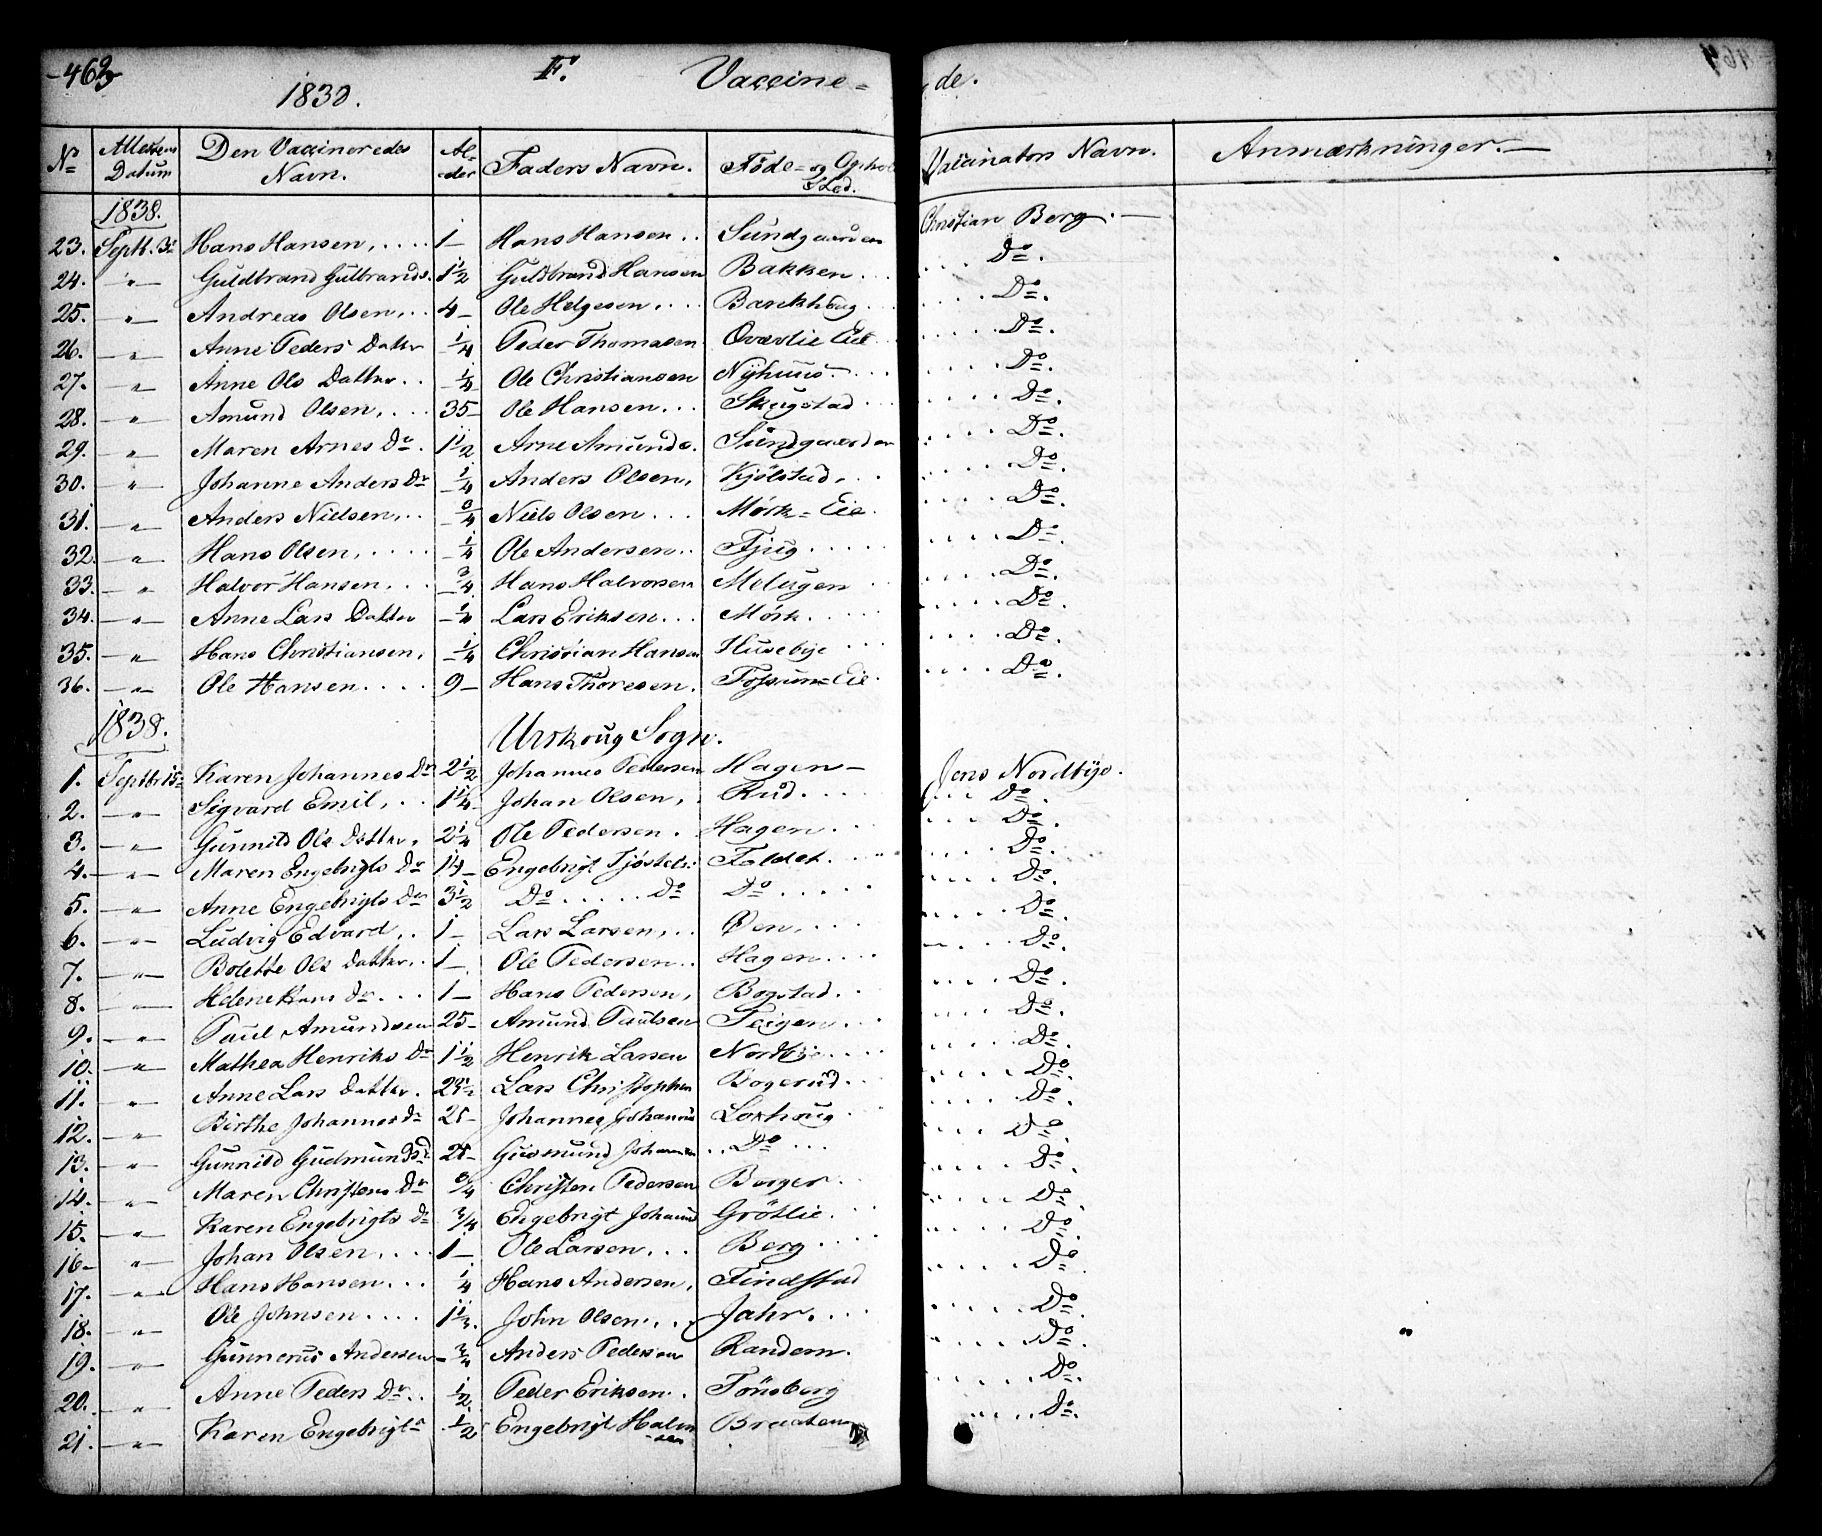 -463
1838. F. Vaccine= de.
No Attestens Datum Den Vaccineredes Navn. Al-der Faders Navn. Føde- og Opholds Sted. Vaccinators Navn. Anmærkninger.—
1838.
23. Septk. 3 Hans Hansen, .... 1— Hans Hansen .. Sundgaarden Christian Berg.—
24. —"— Guldbrand Gulbrands. 1½ Guldbrand Hansen Bakken ... Do.
25. —"— Andreas Olsen, .. 4— Ole Helgesen, ... Bankhoug .... Do.
26. —"— Anne Peders Datter —¼ Peder Thomasen Oværlie Eie .... Do.
27. —"— Anne Ols Datter .. —¼ Ole Christiansen Nyhuus .... Do.
28. —"— Amund Olsen, .... 35— Ole Hansen ... Skugstad .... Do.
29. —"— Maren Arnes Dr. 1½ Arne Amunds. Sundgaarden .... Do.
30. —"— Johanne Anders Dr —¼ Anders Olsen, Kjølstad, .... Do.
31. —"— Anders Nielsen, .. —¾ Niels Olsen ... Mørk=Eie. .... Do.
32. —"— Hans Olsen, ..... —¼ Ole Andersen .. Fjug ..... Do.
33. —"— Halvor Hansen. ... —¾ Hans Halvorsen Melugen .... Do.
34. —"— Anne Lars Datter —¼ Lars Eriksen ... Mørk .... Do.
35. —"— Hans Christiansen, —¼ Christian Hansen Husebye .... Do.
36. —"— Ole Hansen .... 9— Hans Thoresen. Fossum=Eie. .... Do.
1838. Urskoug Sogn.
1. Septbr 15= Karen Johannes Dr 2½ Johannes Pedersen Hagen— Jens Nordbye.
2. —"— Sigvard Emil, .. 1¼ Johan Olsen, . Rud. .... Do.
3. —"— Gunnild Ols Datter, 2¼ Ole Pedersen . Hagen .... Do.
4. —"— Maren Engebrigts Dr 14— Engebrigt Tjøstels: Faldet .... Do.
5. —"— Anne Engebrigts Dr 3½ Do ..... Do Do ..... Do.
6. —"— Ludvig Edvard, .. 1— Lars Larsen, .. Øen, .... Do.
7. —"— Bolette Ols Datter, . 1— Ole Pedersen .. Hagen .... Do.
8. —"— Helene Hans Dr. ... 1— Hans Pedersen, Bogstad. .... Do.
9. —"— Paul Amundsen 25— Amund Paulsen Teigen ... Do.
10. —"— Mathea Henriks Dr 1½ Henrik Larsen Nordbye .... Do.
11. —"— Anne Lars Datter. Lars Christophen Bogerud ... Do.
12. —"— Birthe Johannes Dr Johannes Johannes Loxhoug Do.
13. —"— Gunnild Gudmunds Gudmund Johannes .. Do ... Do.
14. —"— Maren Christens Dr ¾ Christen Pedersen Borger .. Do.
15. —"— Karen Engebrigts Dr ¾ Engebrigt Johannes Grøtlie ... Do.
16— —"— Johan Olsen, .... 1— Ole Larsen, ... Berg .... Do.
17. —"— Hans Hansen ... ¼ Hans Andersen, Findstad Do.
18. —"— Ole Johnsen .... 1⅓. John Olsen, .. Jahr. ... Do.
19. —"— Gunnerius Andersen —¾ Anders Pedersen Randem. Do.
20. —"— Anne Peders Dr .. ½ Peder Eriksen .. Tønsberg Do.
21. —"— Karen Engebrigts ½ Engebrigt Halvorsen Braaten Do.